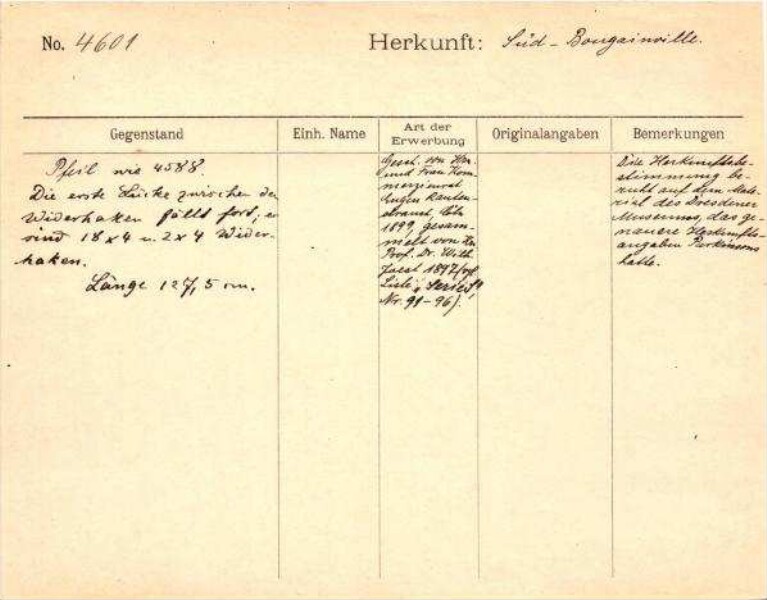 No. 4601
Herkunft: Süd-Bougainville.
Gegenstand
Einh. Name
Art der Erwerbung
Originalangaben
Bemerkungen
Pfeil wie 4588.
Die erste Lücke zwischen den
Widerhaken fällt fort; es
sind 18 x 4 u. 2 x 4 Wider-
haken.
Länge 127,5 cm.
Gesch. von Hrn.
und Frau Kom-
merzienrat
Eugen Rauten-
strauch, Cöln
1899, gesam-
melt von Hn.
Prof. Dr. Wilh.
Joest 1897
Liste
Nr. 91-96).
Die Herkunftsbe-
stimmung be-
ruht auf dem Mate-
rial des Dresdener
Museums, das ge-
nauere Herkunfts-
angaben Parkinsons
hatte.